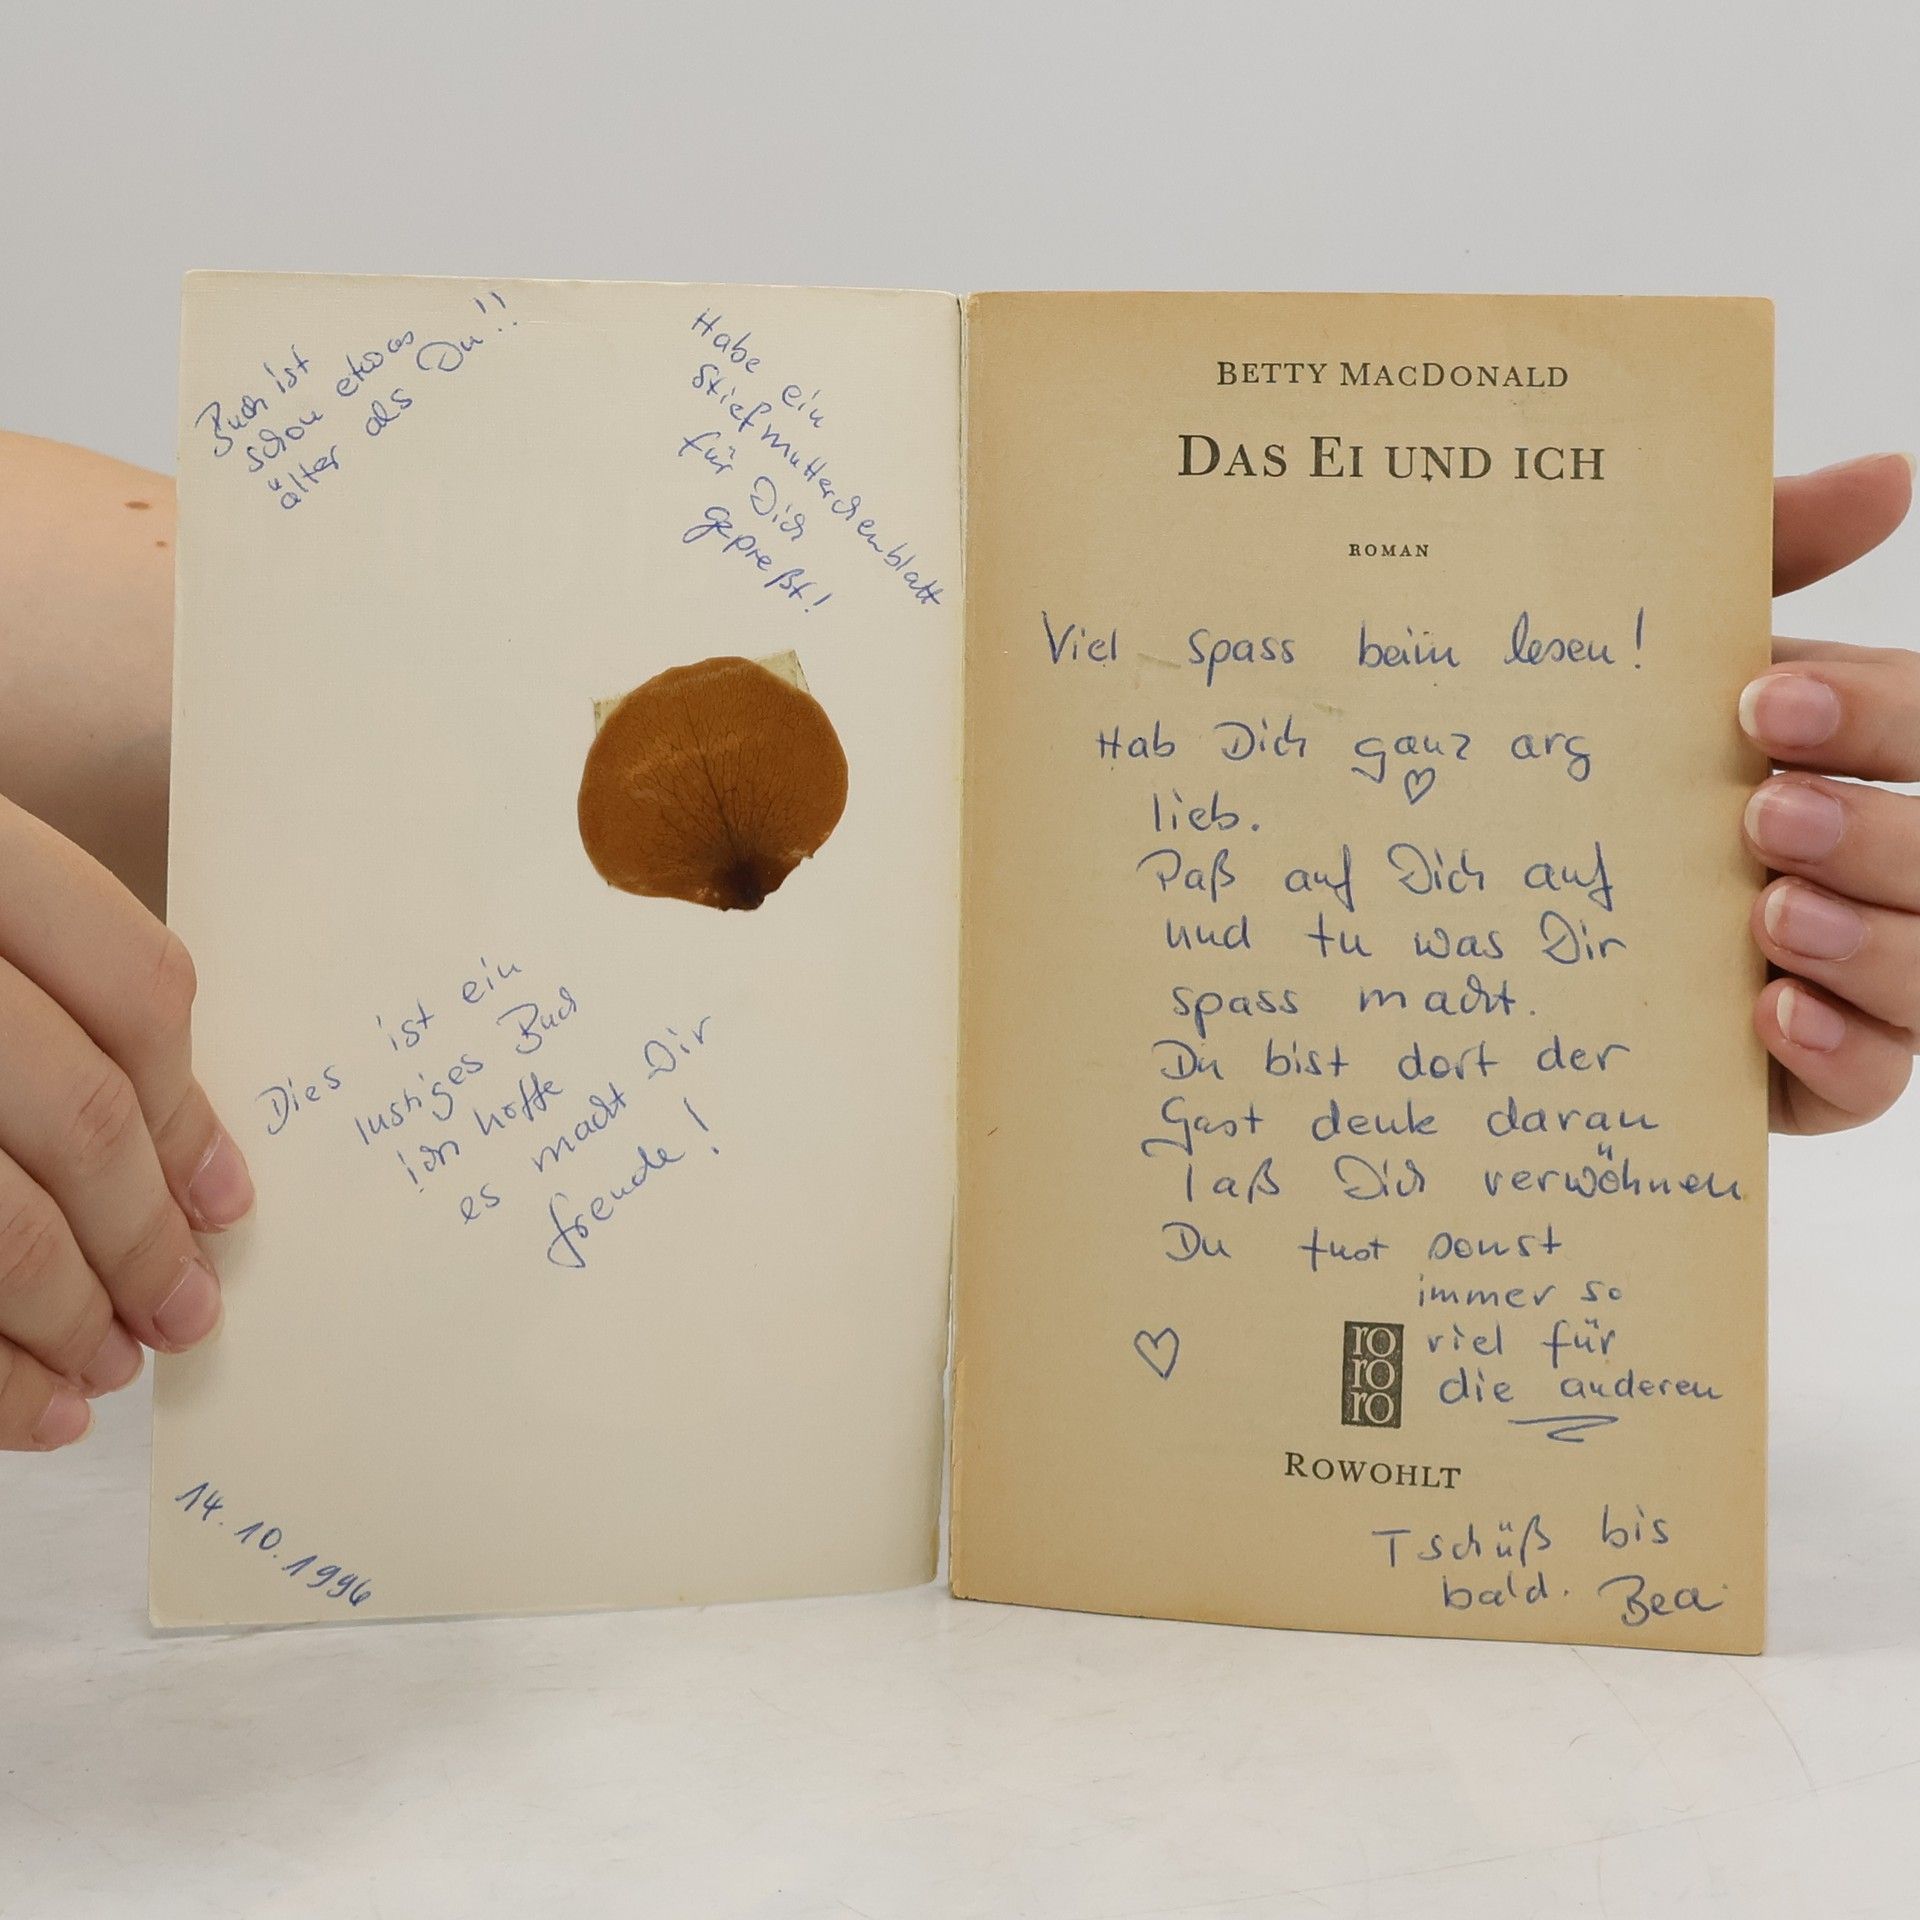 Buch ist
schon etwas
älter als Du!!
Habe ein
Stiefmütterchenblatt
für Dich
gepreßt!
Dies ist ein
lustiges Buch
ich hoffe
es macht Dir
freude!
14.10.1996
BETTY MACDONALD
DAS EI UND ICH
ROMAN
Viel spass beim lesen!
Hab Dich ganz arg
lieb.
Paß auf Dich auf
und tu was Dir
spass macht.
Du bist dort der
Gast denk daran
laß Dich verwöhnen
Du tust sonst
immer so
viel für
die anderen
ro
ro
ro
ROWOHLT
Tschüß bis
bald. Bea